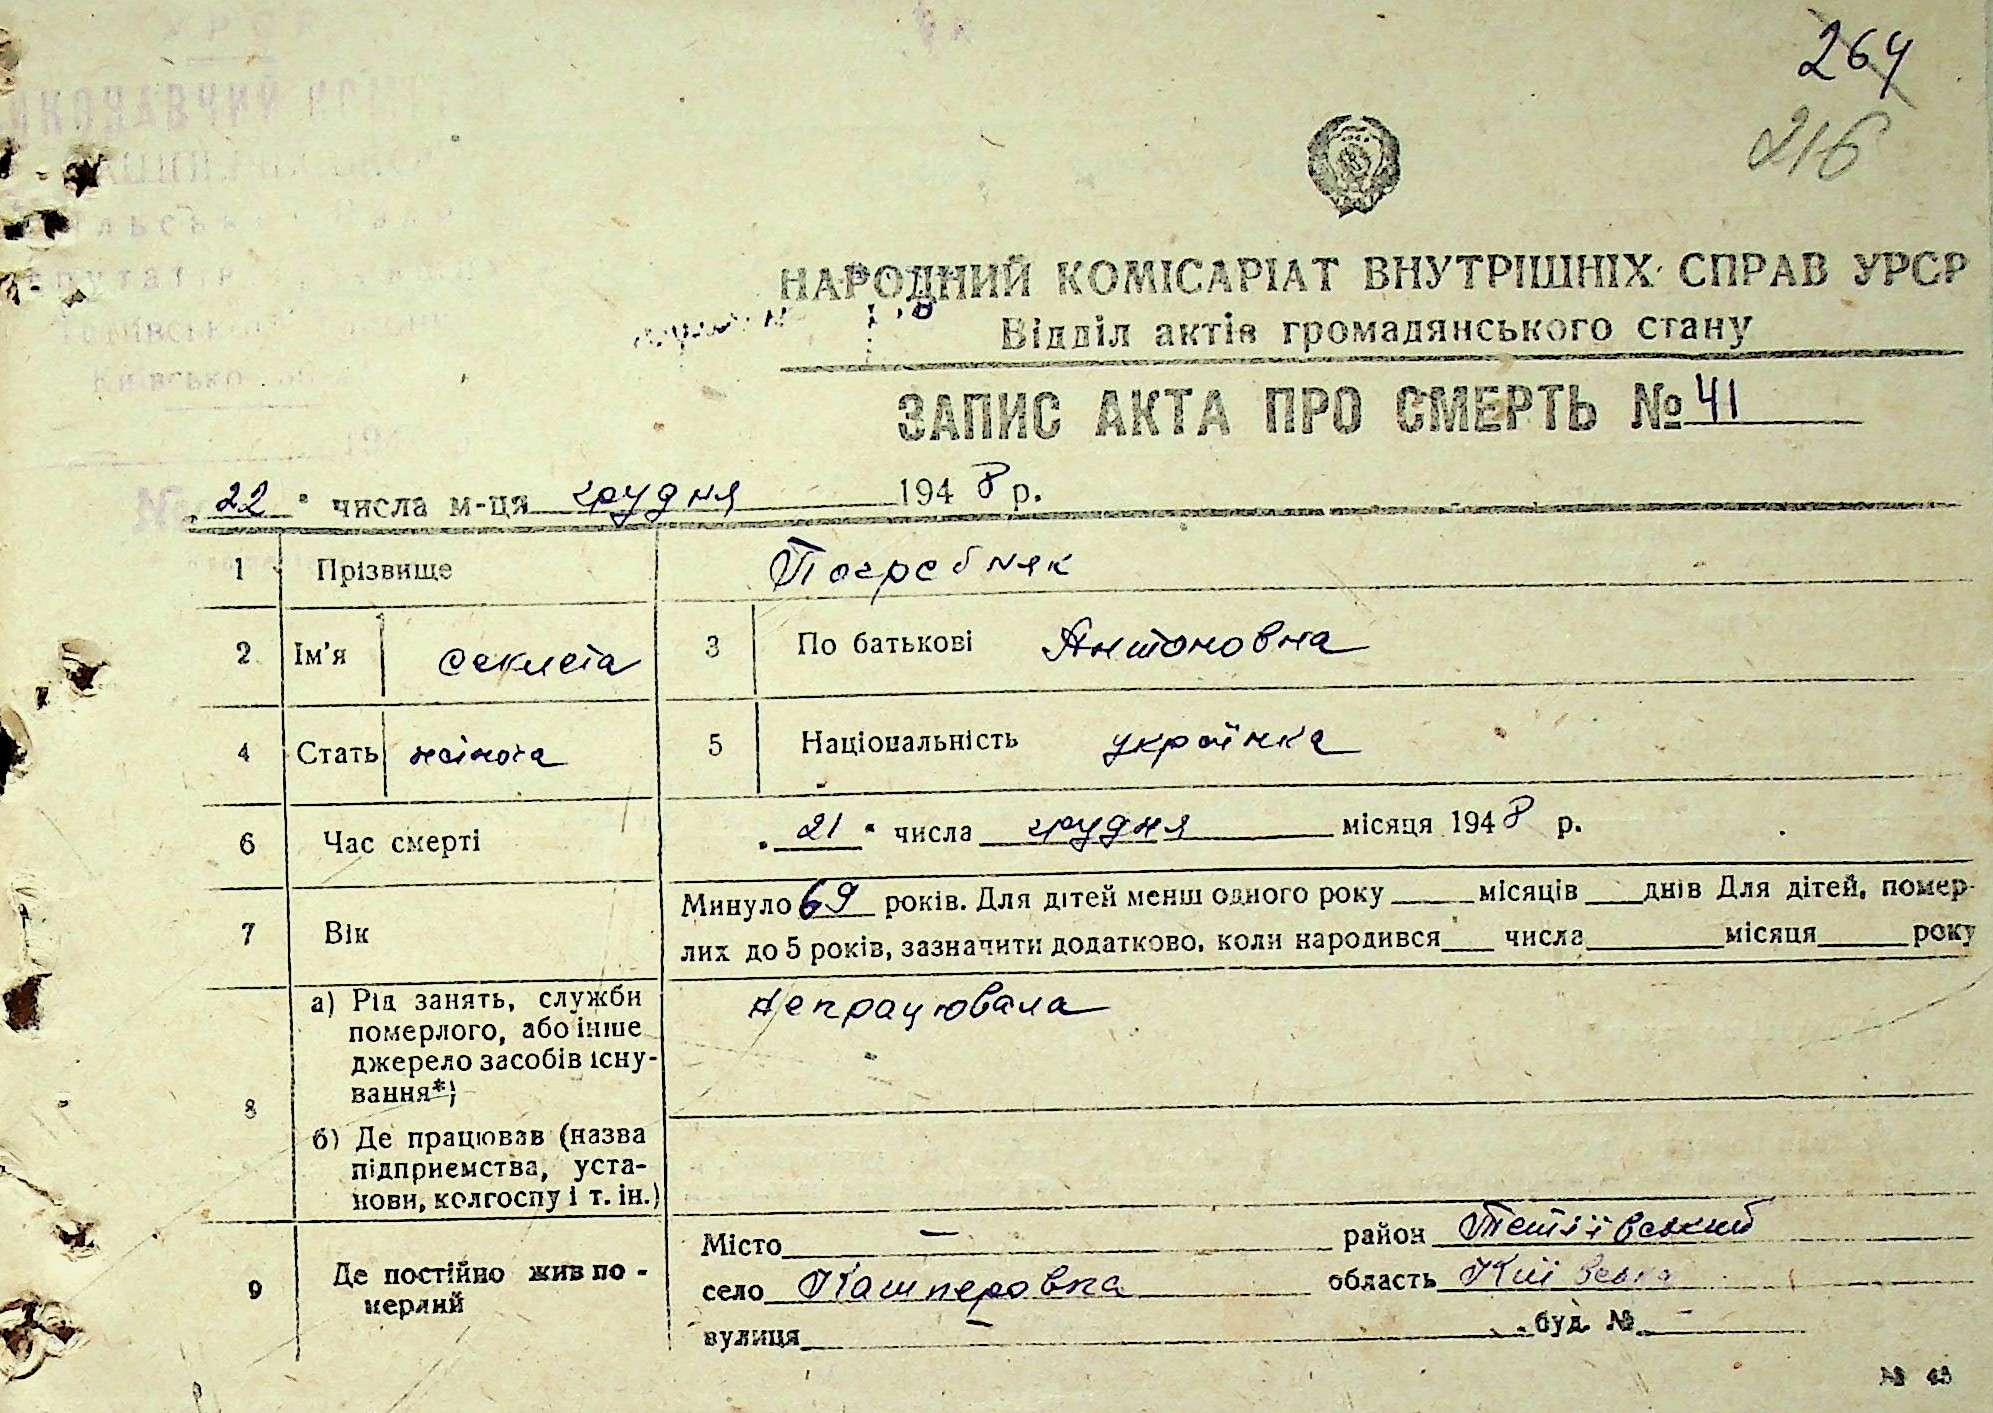 264
216
НАРОДНИЙ КОМІСАРІАТ ВНУТРІШНІХ СПРАВ УРСР
Відділ актів громадянського стану
ЗАПИС АКТА ПРО СМЕРТЬ № 41
22 " числа м-ця грудня 1948 р.
1 Прізвище Погребняк
2 Ім'я Секлета 3 По батькові Антоновна
4 Стать жіноча 5 Національність українка
6 Час смерті 21 " числа грудня місяця 1948 р.
7 Вік Минуло 69 років. Для дітей менш одного року місяців днів Для дітей, помер-
лих до 5 років, зазначити додатково, коли народився числа місяця року
8 а) Рід занять, служби непрацювала
померлого, або інше
джерело засобів існу-
вання*)
б) Де працював (назва
підприємства, уста-
нови, колгоспу і т. ін.)
9 Де постійно жив по-
мерлий
Місто — район Тетіївський
село Кашперовка область Київська
вулиця — буд. № —
№ 43